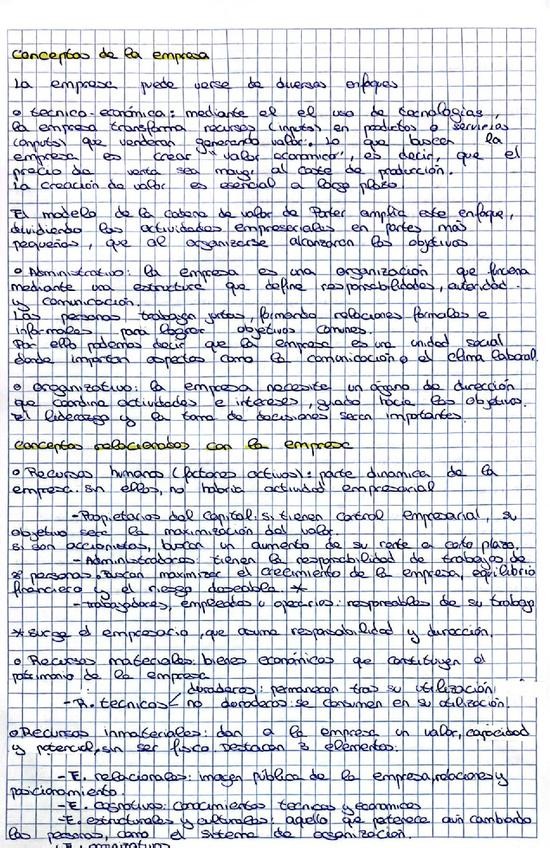 Conceptos de la empresa
La empresa puede verse de diversos enfoques
o técnico-económica: mediante el el uso de tecnologías,
la empresa transforma recursos (inputs) en productos o servicios
(outputs) que venderán generando valor. Lo que busca la
empresa es crear "valor económico", es decir, que el
precio de venta sea mayor al coste de producción.
La creación de valor es esencial a largo plazo.
El modelo de la cadena de valor de Porter amplía este enfoque,
dividiendo las actividades empresariales en partes más
pequeñas, que al organizarse alcanzaran los objetivos
o Administrativo: la empresa es una organización que funciona
mediante una estructura que define responsabilidades, autoridad
y comunicación.
Las personas trabajan juntas, formando relaciones formales e
informales para lograr objetivos comunes.
Por ello podemos decir que la empresa es una unidad social
donde importan aspectos como la comunicación o el clima laboral.
o organizativo: la empresa necesita un órgano de dirección
que coordina actividades e intereses, guiado hacia los objetivos.
El liderazgo y la toma de decisiones serán importantes.
Conceptos relacionados con la empresa
o Recursos humanos (factores activos): parte dinámica de la
empresa. Sin ellos, no habría actividad empresarial
-Propietarios del Capital: si tienen control empresarial, su
objetivo será la maximización del valor.
si son accionistas, buscan un aumento de su renta a corto plazo.
-Administradores: tienen la responsabilidad de trabajos de
personas. Buscan maximizar el crecimiento de la empresa, equilibrio
financiero y el riesgo deseable *
-trabajadores, empleados u operarios: responsables de su trabajo
*surge el empresario, que asume responsabilidad y dirección.
o Recursos materiales: bienes económicos que constituyen el
patrimonio de la empresa
duraderos: permanecen tras su utilización
-R. técnicos< no duraderos: se consumen en su utilización.
o Recursos inmateriales: dan a la empresa un valor, capacidad
y potencial, sin ser físico. Destacan 3 elementos:
-E. relacionales: imagen pública de la empresa, relaciones y
posicionamiento.
-E. cognitivos: conocimientos técnicos y económicos
-E. estructurales y culturales: aquello que permanece aún cambiando
las personas, como el sistema de organización.